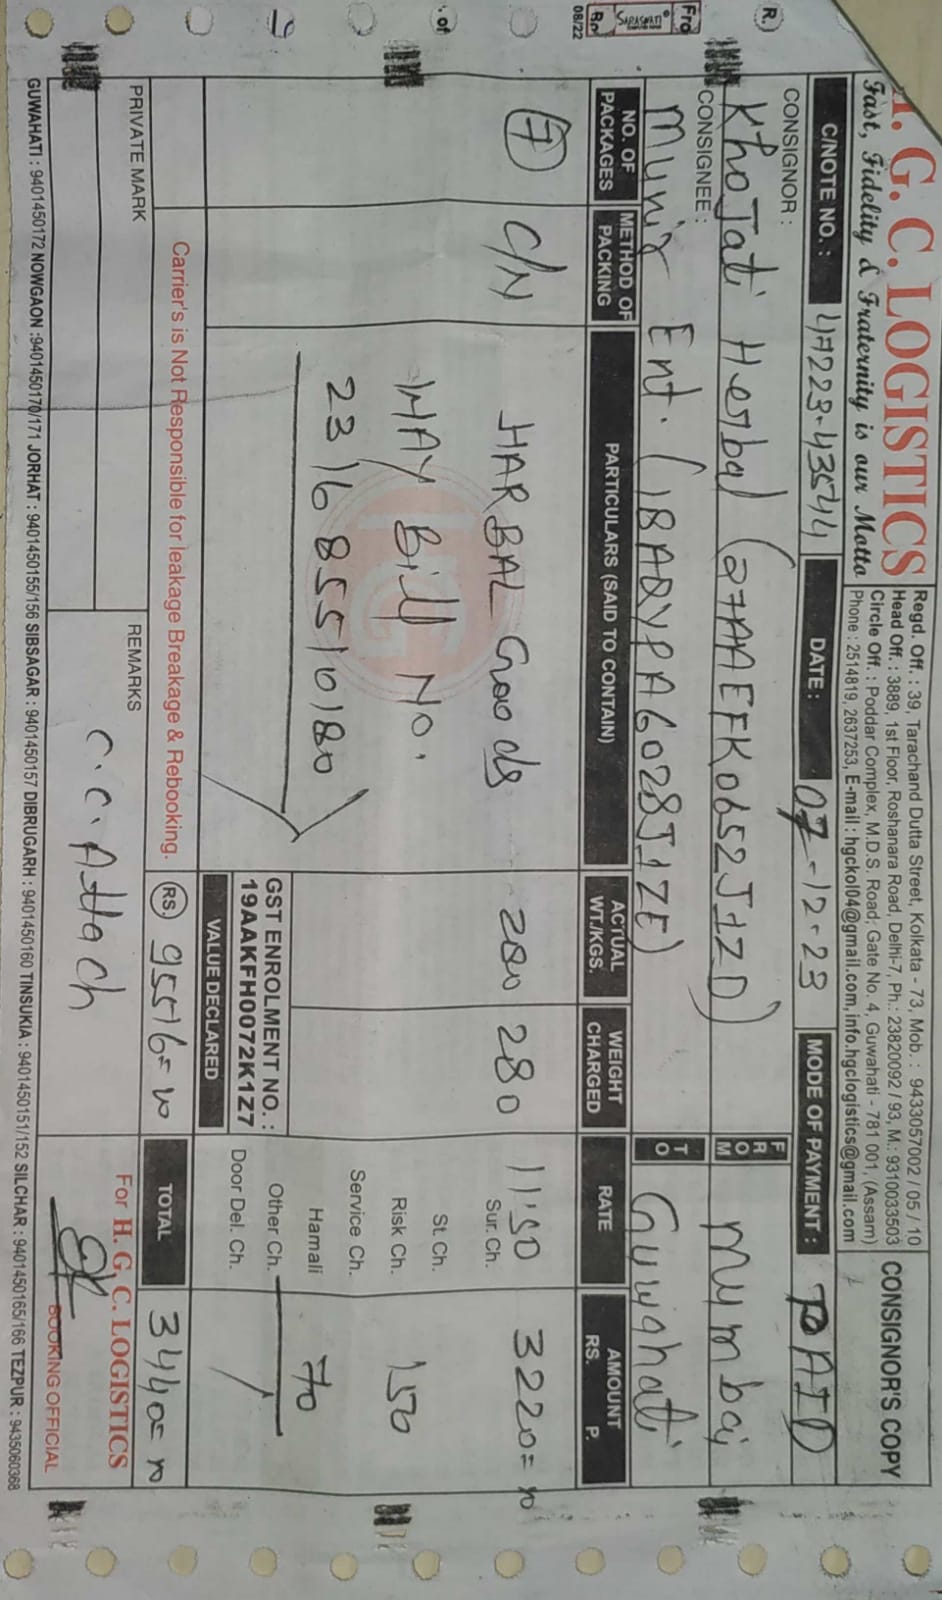 H. G. C. LOGISTICS
Fast, Fidelity & Fraternity is our Motto
Regd. Off. : 39, Tarachand Dutta Street, Kolkata - 73, Mob. : 9433057002 / 05 / 10
Head Off. : 3889, 1st Floor, Roshanara Road, Delhi-7, Ph.: 23820092 / 93, M.: 9310033503
Circle Off. : Poddar Complex, M.D.S. Road, Gate No. 4, Guwahati - 781 001, (Assam)
Phone : 2514819, 2637253, E-mail : hgckol04@gmail.com, info.hgclogistics@gmail.com
CONSIGNOR'S COPY
C/NOTE NO. : 47223-43544 DATE : 07-12-23 MODE OF PAYMENT : PAID
CONSIGNOR :
Khojati Herbal (27AAEFK0652J1ZD) FROM Mumbai
CONSIGNEE :
Munir Ent. (18AQYPA6028J1ZE) TO Guwahati
NO. OF PACKAGES METHOD OF PACKING PARTICULARS (SAID TO CONTAIN) ACTUAL WT./KGS. WEIGHT CHARGED RATE AMOUNT RS. P.
7 C/N HARBAL Goods 280 280 11.50 3220=00
Sur. Ch.
St. Ch.
WAY Bill No. Risk Ch. 150
Service Ch.
23 16855 10180 Hamali 70
GST ENROLMENT NO. : Other Ch.
19AAKFH0072K1Z7 Door Del. Ch.
VALUE DECLARED
Carrier's is Not Responsible for leakage Breakage & Rebooking. RS. 95516=00 TOTAL 3440=00
PRIVATE MARK REMARKS
C.C. Attach
For H. G. C. LOGISTICS
BOOKING OFFICIAL
GUWAHATI : 9401450172 NOWGAON :9401450170/171 JORHAT : 9401450155/156 SIBSAGAR : 9401450157 DIBRUGARH : 9401450160 TINSUKIA : 9401450151/152 SILCHAR : 9401450165/166 TEZPUR : 9435060368
R.
Fro
SARASWATI
Bn
08/22
of